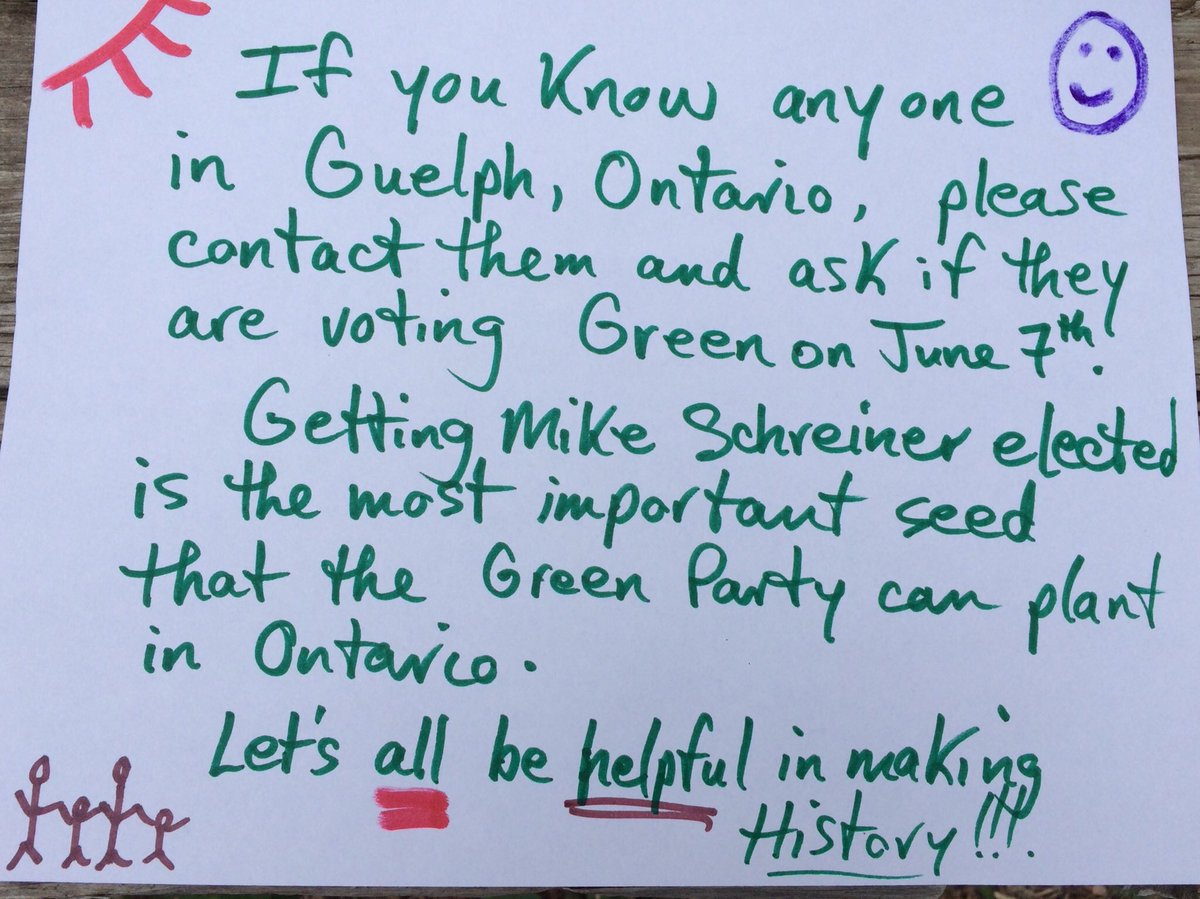 If you Know anyone
in Guelph, Ontario, please
contact them and ask if they
are voting Green on June 7th.
Getting Mike Schreiner elected
is the most important seed
that the Green Party can plant
in Ontario.
Let's all be helpful in making
History!!!